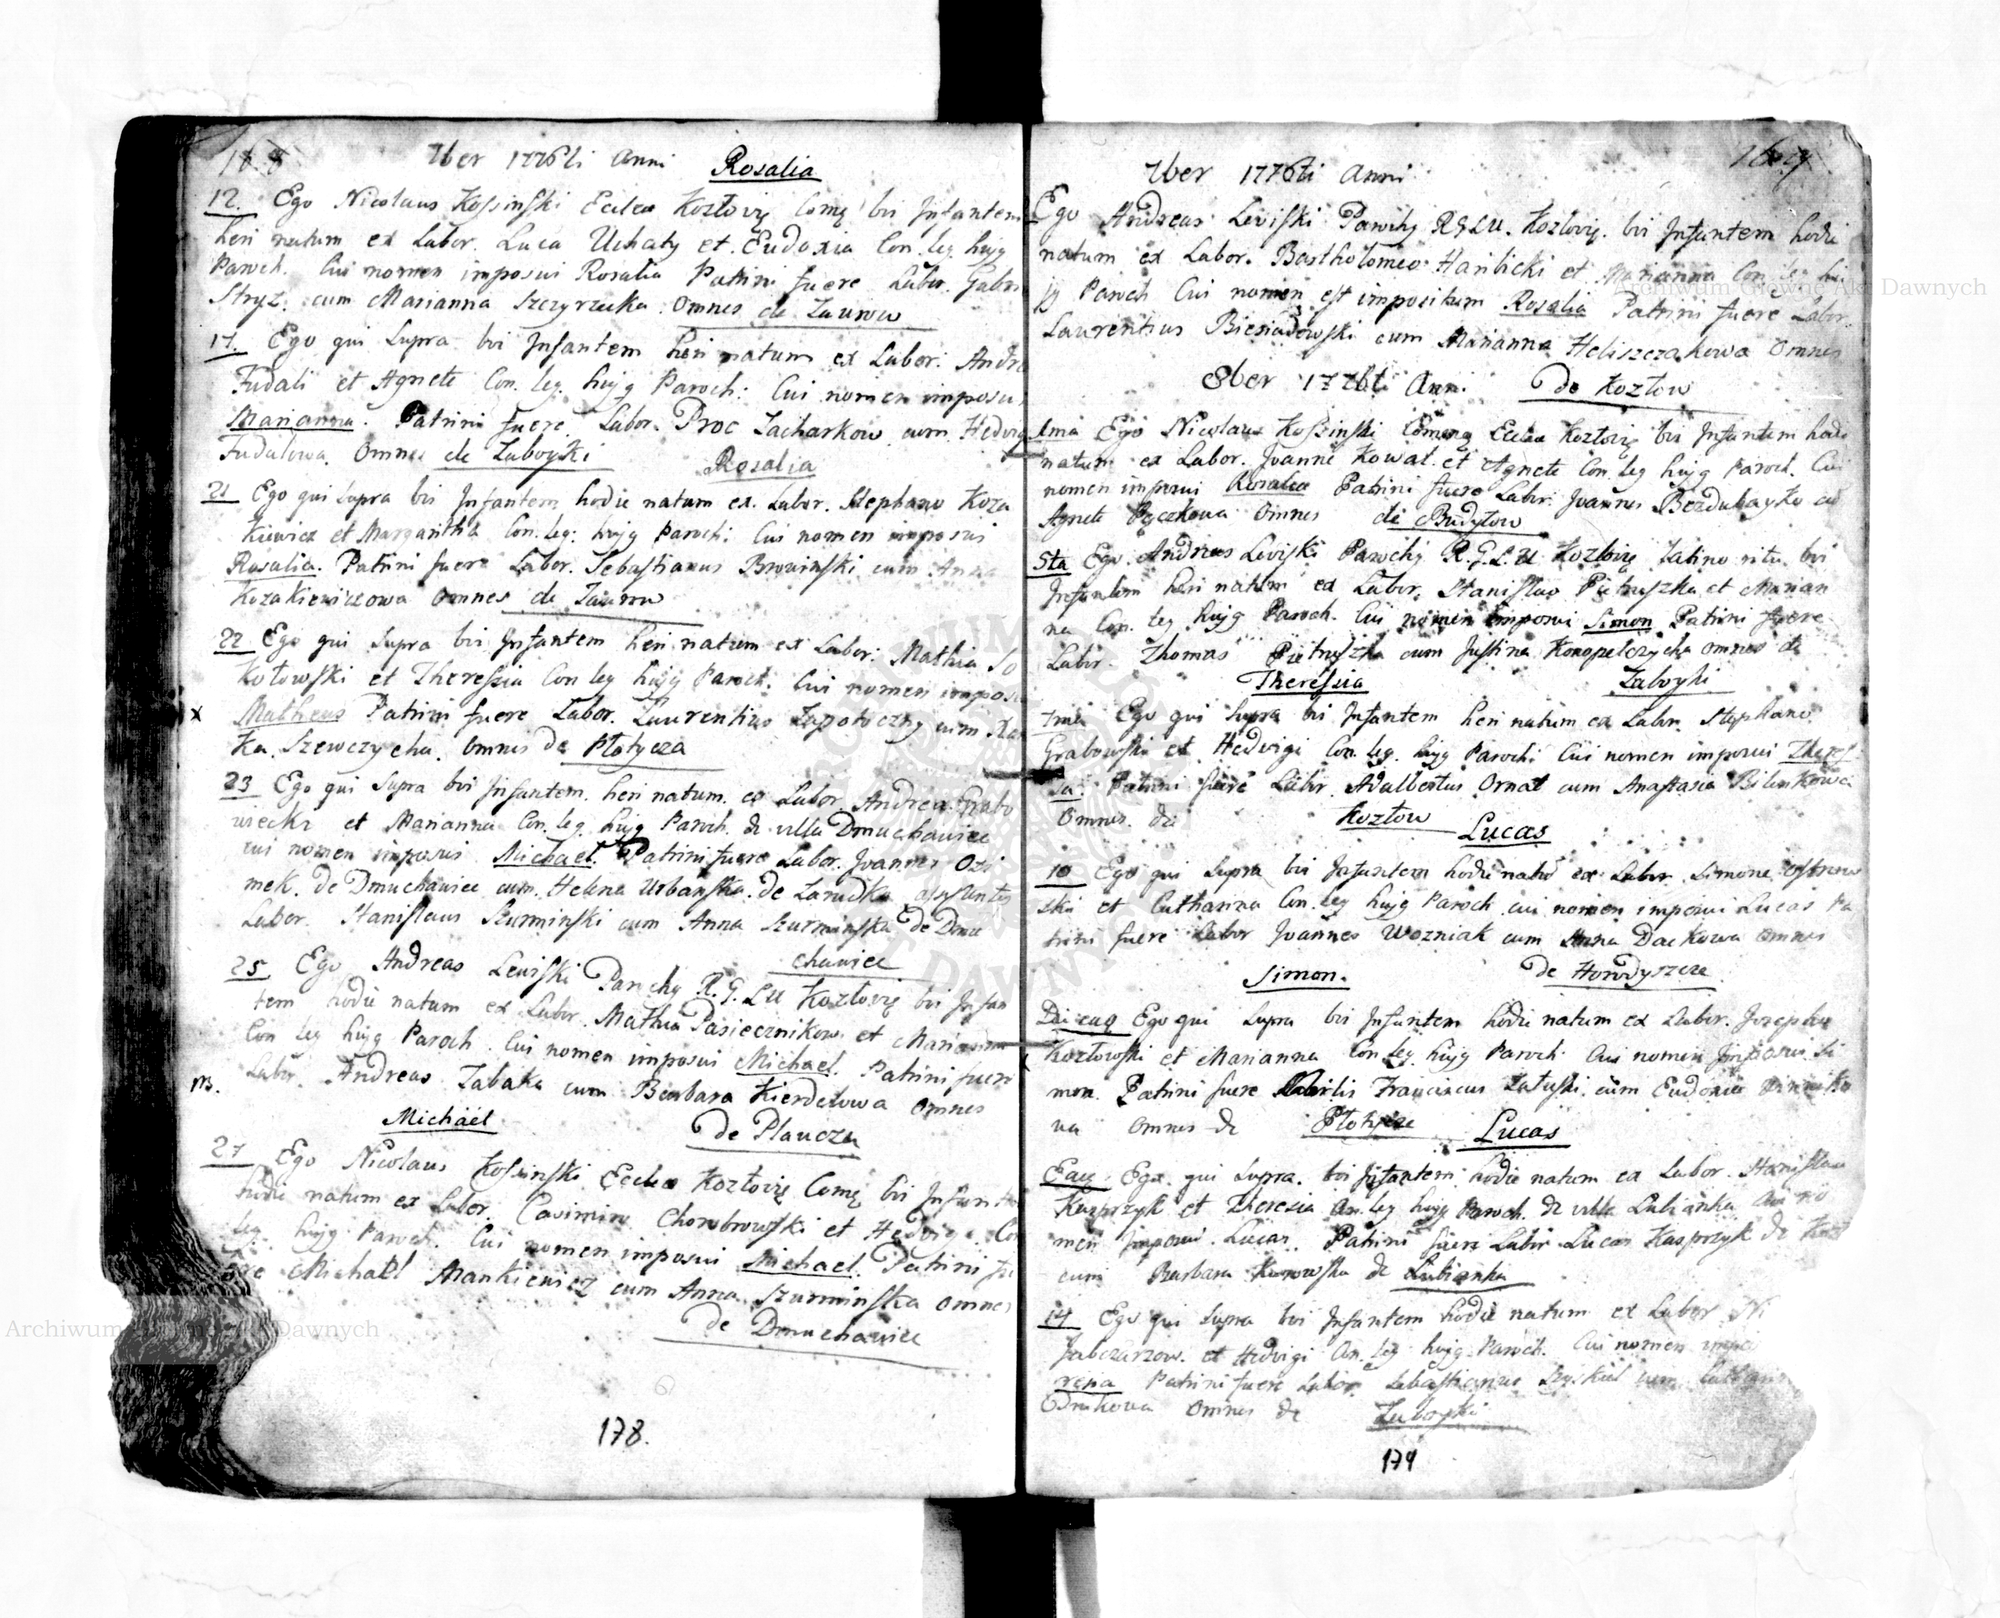 168
7ber 1776ti Anni Rosalia
12. Ego Nicolaus Kossinski Eccleæ Kozłovię Comę bti Infantem
heri natum ex Labor. Luca Uchaty et Eudoxia Con. leg. hujg
Paroch. Cui nomen imposui Rosalia Patrini fuere Labor. Gabri
Stryz. cum Marianna Szczyrzecka Omnes de Taurow
17. Ego qui Supra bti Infantem heri natum ex Labor: Andr
Fudali et Agnete Con. leg. hujg Paroch: Cui nomen imposui
Marianna. Patrini fuere Labor. Proc Zacharkow cum Hedvig
Fudalowa Omnes de Zaboyki
Rosalia
21 Ego qui Supra bti Infantem hodie natum ex Labor. Stephano Koza
kiewicz et Margaritha Con. leg: hujg Paroch: Cui nomen imposui
Rosalia. Patrini fuere Labor. Sebastianus Browinski cum Anna
Kozakiewiczowa Omnes de Taurow
22 Ego qui Supra bti Infantem heri natum ex Labor: Mathia So
kołowski et Theressia Con leg hujg Paroch. Cui nomen imposui
x Matheus Patrini fuere Labor. Laurentius Zapotoczny cum
ka Szewczycha Omnes de Płotycza
23 Ego qui Supra bti Infantem heri natum ex Labor Andrea Grabo
wiecki et Marianna Con. leg. hujg Paroch. de villa Dmuchawiec
cui nomen imposui Michael. Patrini fuere Labor. Joannes Ozi
mek. de Dmuchawiec cum Helena Urbanska de Zarudka assistentes
Labor. Stanislaus Szurminski cum Anna Szurminska De Dmu
chawiec
25 Ego Andreas Leviski Parochg R. G. L U Kozlovię bti Infan
tem hodie natum ex Labor. Mathia Pasiecznikow et Marianna
Con leg hujg Paroch. Cui nomen imposui Michael. Patrini fuere
Labor. Andreas Zabaka cum Barbara Kierdelowa Omnes
Michael
de Plaucza
27 Ego Nicolaus Kossinski Eccleæ Kozłovię Comę bti Infantem
hodie natum ex Labor. Casimiro Chorobrowski et Hedvige Con
leg. hujg Paroch. Cui nomen imposui Michael. Patrini fu
ere Michael Mankiewicz cum Anna Szurminska Omnes
de Dmuchawiec
178.
169
7ber 1776ti Anni
Ego Andreas Leviski Parochg R G L U. Kozlovię. bti Infantem hodie
natum ex Labor. Bartholomeo Harlicki et Marianna Con leg hu
jg Paroch Cui nomen est impositum Rosalia Patrini fuere Labor.
Laurentius Biesiadowski cum Marianna Heliszczakowa Omnes
8ber 1776ti Anni. De Kozłow
1ma Ego Nicolaus Kossinski Comeng Eccleæ Kozlovię bti Infantem hodie
natum ex Labor. Joanne Kowal. et Agnete Con. leg hujg Paroch. Cui
nomen imposui Rosalia Patrini fuere Labor: Joannes Bezdubayko cu
Agnete Pączkowa Omnes de Budyłow
5ta Ego Andreas Leviski Parochg R. G. L. U Kozlovię latino ritu bti
Infantem heri natum ex Labor. Stanislao Pietruszka et Marian
na Con. leg hujg Paroch. Cui nomen imposui Simon Patrini fuere
Labor. Thomas Pietruszka cum Justina Konopelczycha omnes de
Theressia Zaboyki
7ma Ego qui Supra bti Infantem heri natum ex Labor. Stephano
Grabowski et Hedvigi Con. leg. hujg Paroch: Cui nomen imposui Theres
sia Patrini fuere Labor. Adalbertus Ornat cum Anastasia Bilinkowa
Omnes de Kozłow
Lucas
10 Ego qui Supra bti Infantem hodie natū ex Labor Simone Ostrow
ski et Catharina Con. leg hujg Paroch cui nomen imposui Lucas Pa
trini fuere Labor Joannes Wozniak cum Anna Dackowa Omnes
Simon. De Horodyszcze
Die eaq Ego qui Supra bti Infantem hodie natum ex Labor. Josepho
Kozłowski et Marianna Con leg. hujg Paroch. Cui nomen Imposui Si
mon. Patrini fuere Nobilis Franciscus Załuski cum Eudoxia
wa Omnes de Płotycze
Lucas
Eaq Ego qui Supra. bti Infantem hodie natum ex Labor. Stanislao
Kasprzyk et Theresia Con. leg hujg Paroch. de villa Lubianka cui no
men imposui. Lucas. Patrini fuere Labor Lucas Kasprzyk de
cum Barbara Kurowska de Lubianka
14 Ego qui Supra bti Infantem hodie natum ex Labor
Jabczarzow. et Hedvigi Con. leg hujg Paroch. Cui nomen impo
resia Patrini fuere Labor Sebastianus cum
Omnes de Zaboyki
179